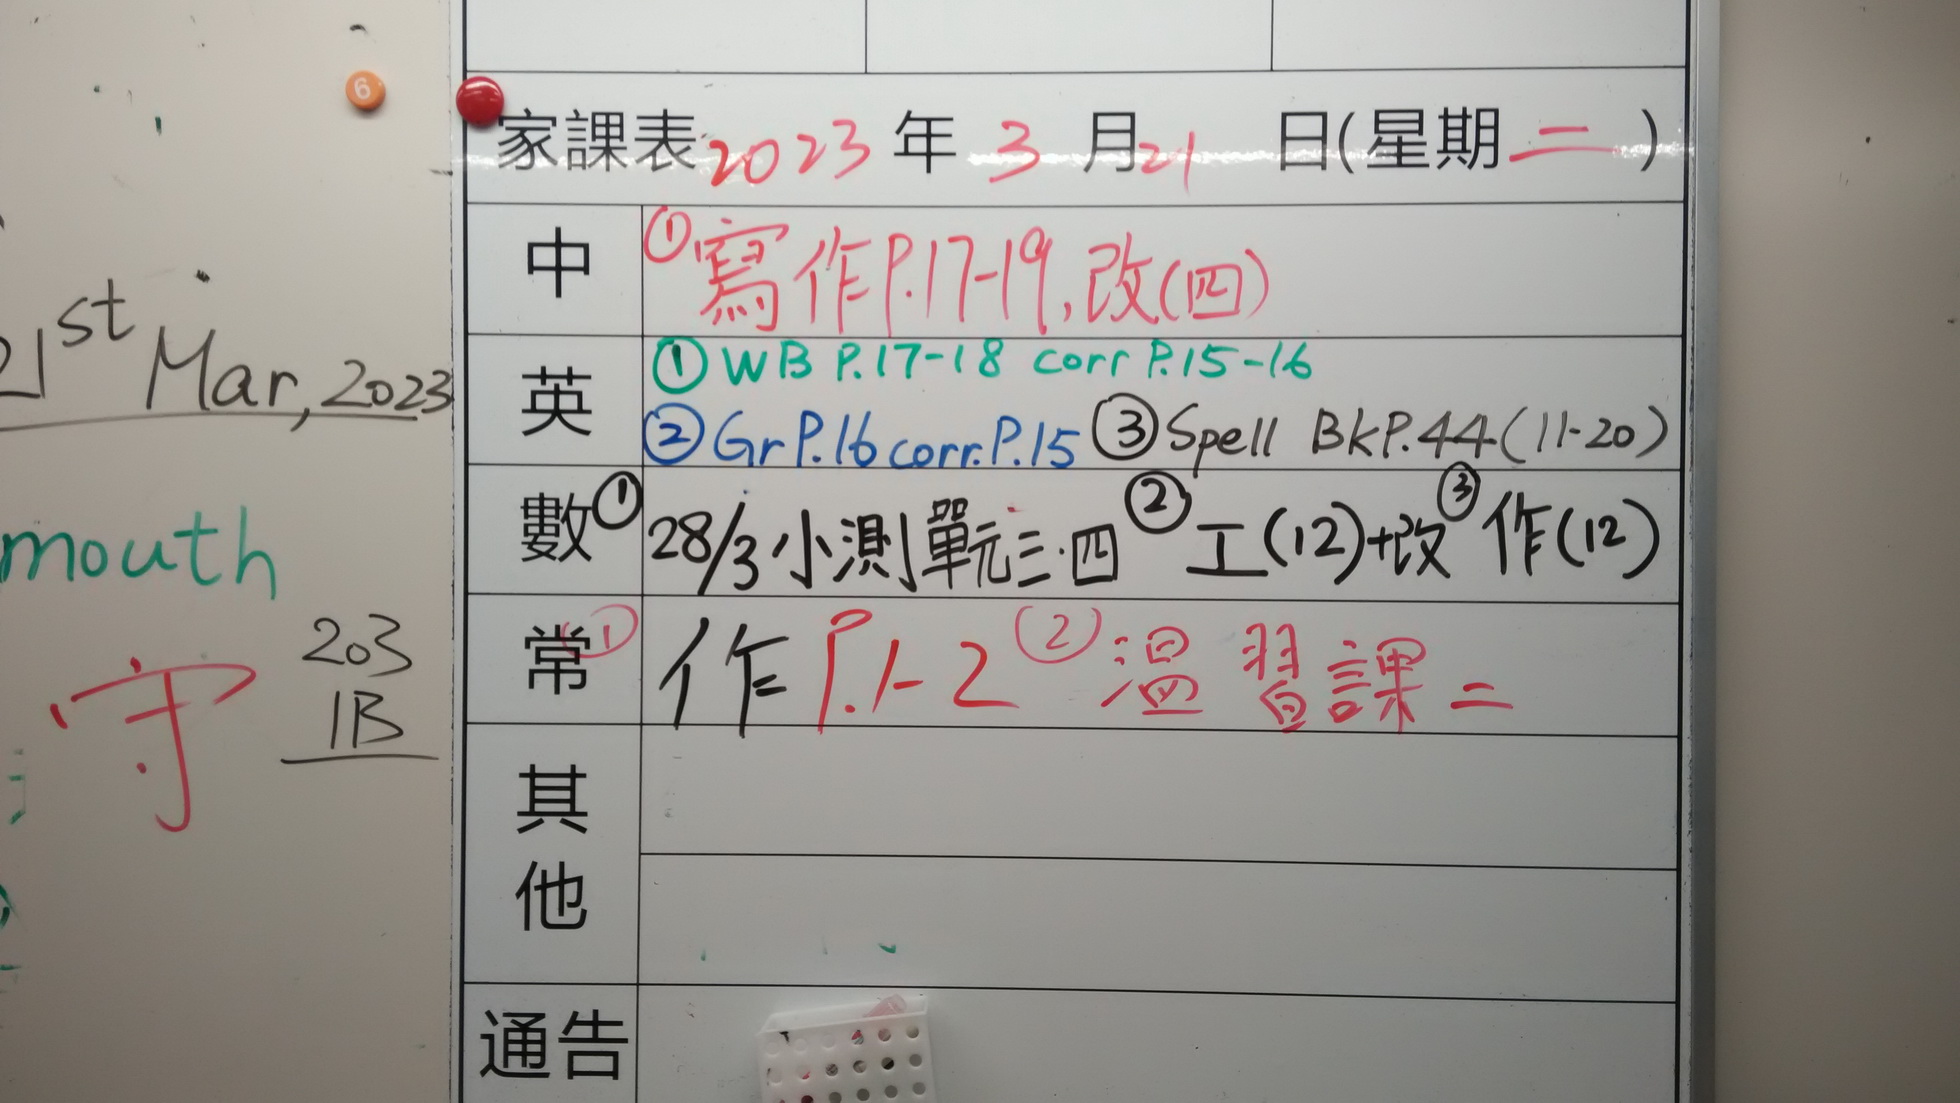 6
家課表 2023 年 3 月 21 日(星期二)
中 ①寫作P.17-19,改(四)
英 ①WB P.17-18 corr P.15-16
②Gr P.16 corr.P.15 ③Spell BkP.44(11-20)
數 ①28/3小測單元三.四 ②工(12)+改 ③作(12)
常 ①作P.1-2 ②溫習課二
其他
通告
21st Mar, 2023
mouth
守
203
1B